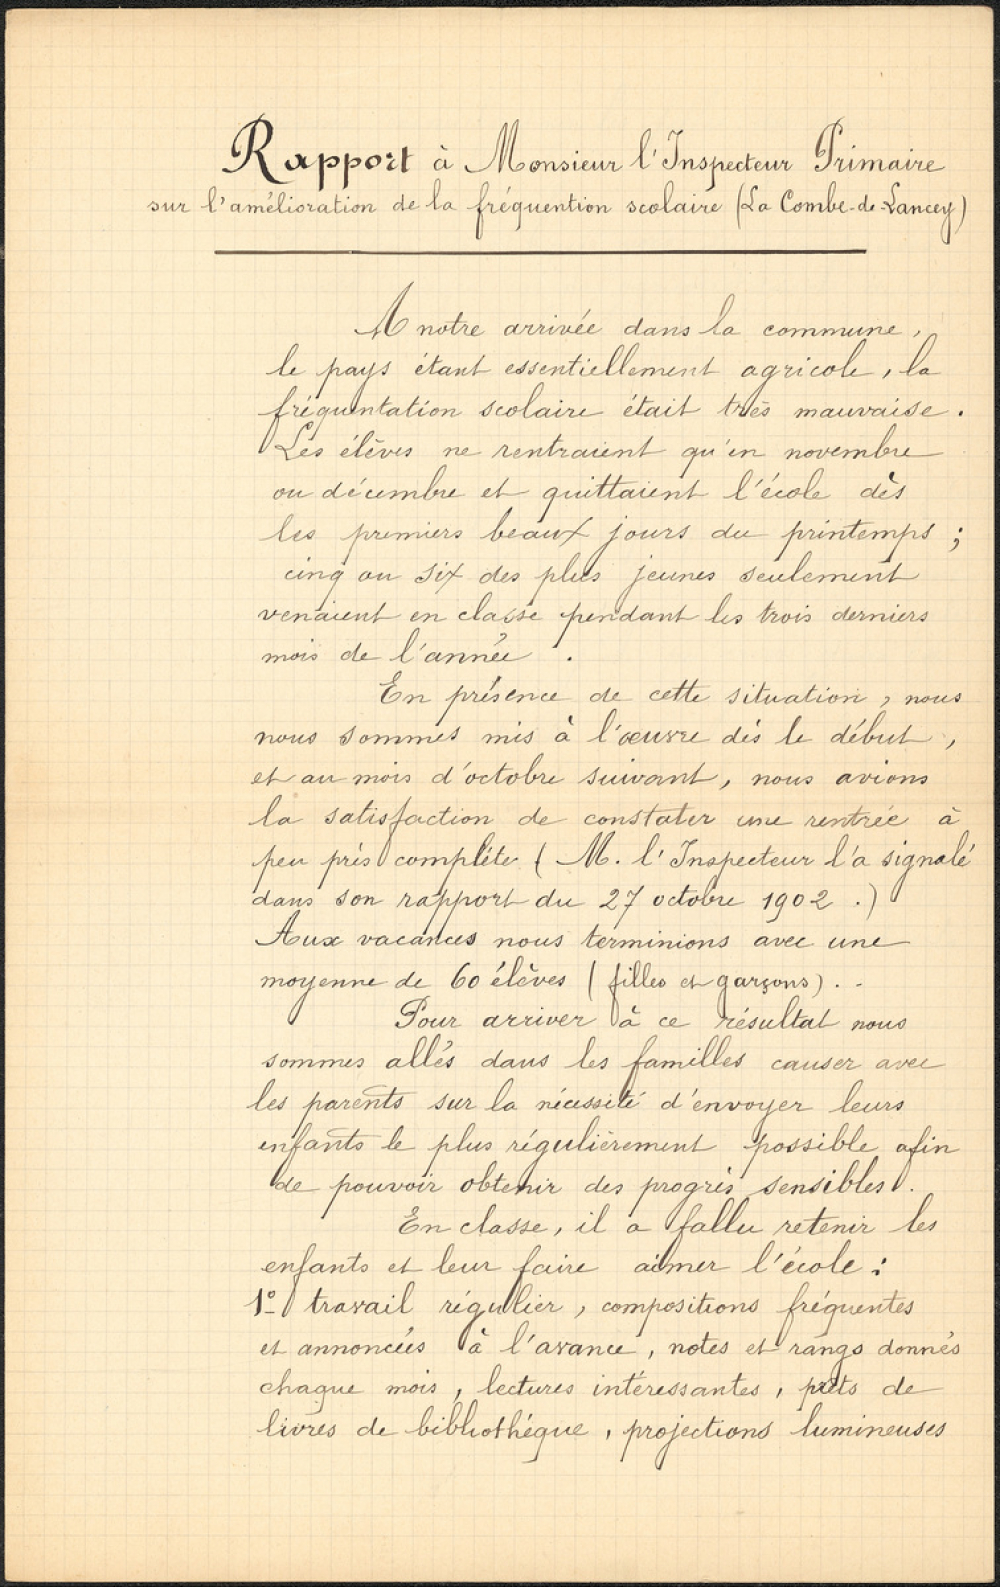 Rapport à Monsieur l'Inspecteur Primaire
sur l'amélioration de la fréquention scolaire (La Combe-de-Lancey)
A notre arrivée dans la commune,
le pays étant essentiellement agricole, la
fréquentation scolaire était très mauvaise.
Les élèves ne rentraient qu'en novembre
ou décembre et quittaient l'école dès
les premiers beaux jours du printemps ;
cinq ou six des plus jeunes seulement
venaient en classe pendant les trois derniers
mois de l'année .
En présence de cette situation, nous
nous sommes mis à l'œuvre dès le début,
et au mois d'octobre suivant, nous avions
la satisfaction de constater une rentrée à
peu près complète (M. l'Inspecteur l'a signalé
dans son rapport du 27 octobre 1902 .)
Aux vacances nous terminions avec une
moyenne de 60 élèves (filles et garçons). .-
Pour arriver à ce résultat nous
sommes allés dans les familles causer avec
les parents sur la nécessité d'envoyer leurs
enfants le plus régulièrement possible afin
de pouvoir obtenir des progrès sensibles.
En classe, il a fallu retenir les
enfants et leur faire aimer l'école :
1º travail régulier, compositions fréquentes
et annoncées à l'avance, notes et rangs donnés
chaque mois, lectures intéressantes, prêts de
livres de bibliothèque, projections lumineuses